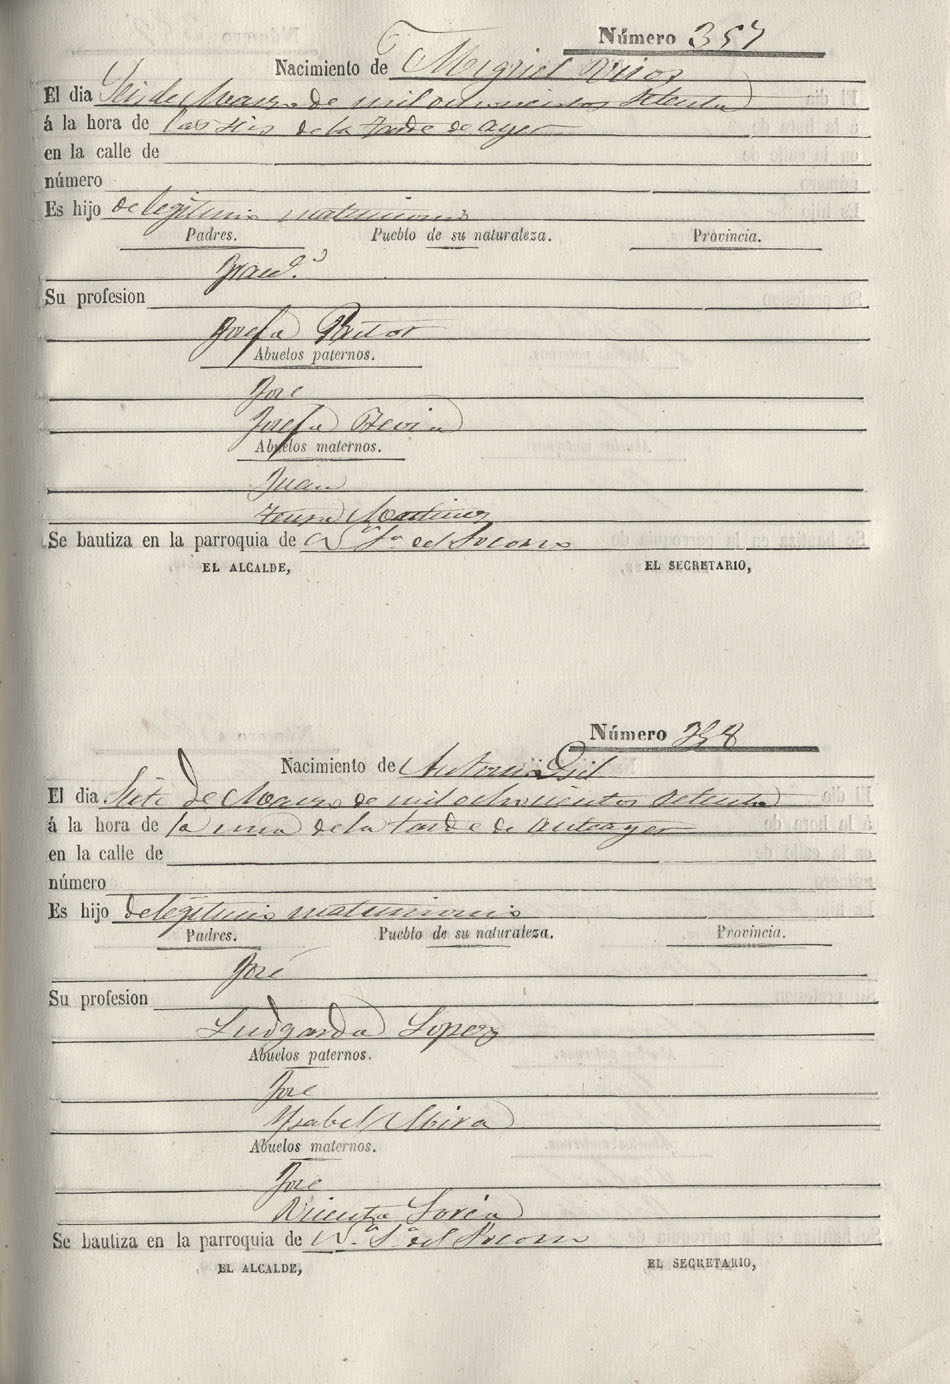 Número 357
Nacimiento de Miguel
El dia Seis de Marzo de mil ochocientos setenta
á la hora de las seis de la tarde de ayer
en la calle de
número
Es hijo de legitimo matrimonio
Padres. Pueblo de su naturaleza. Provincia.
Franco.
Su profesion
Josefa Pastor
Abuelos paternos.
José
Josefa
Abuelos maternos.
Juan
Teresa Martinez
Se bautiza en la parroquia de N.ª S.ª del Socorro
EL ALCALDE, EL SECRETARIO,
Número 358
Nacimiento de Antonio Gil
El dia Siete de Marzo de mil ochocientos setenta
á la hora de la una de la tarde de anteayer
en la calle de
número
Es hijo de legitimo matrimonio
Padres. Pueblo de su naturaleza. Provincia.
José
Su profesion
Ludgarda Lopez
Abuelos paternos.
José
Ysabel Mira
Abuelos maternos.
José
Vicenta Soria
Se bautiza en la parroquia de N.ª S.ª del Socorro
EL ALCALDE, EL SECRETARIO,